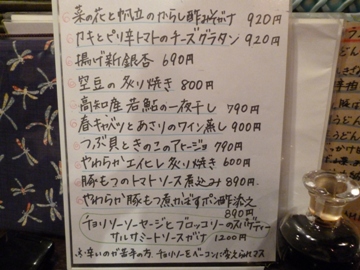 菜の花と帆立のからし酢みそがけ 920円
カキとピリ辛トマトのチーズグラタン 920円
揚げ新銀杏 690円
空豆の炙り焼き 800円
高知産若鮎の一夜干し 790円
春キャベツとあさりのワイン蒸し 900円
つぶ貝ときのこのアヒージョ 790円
やわらかエイヒレ炙り焼き 600円
豚もつのトマトソース煮込み 890円
やわらか豚もつ煮かぼすポン酢添え
890円
チョリソーソーセージとブロッコリーのスパゲティー
サルサミートソースがけ 1200円
辛いのが苦手の方 チョリソーをベーコンに変えられマス
うどん